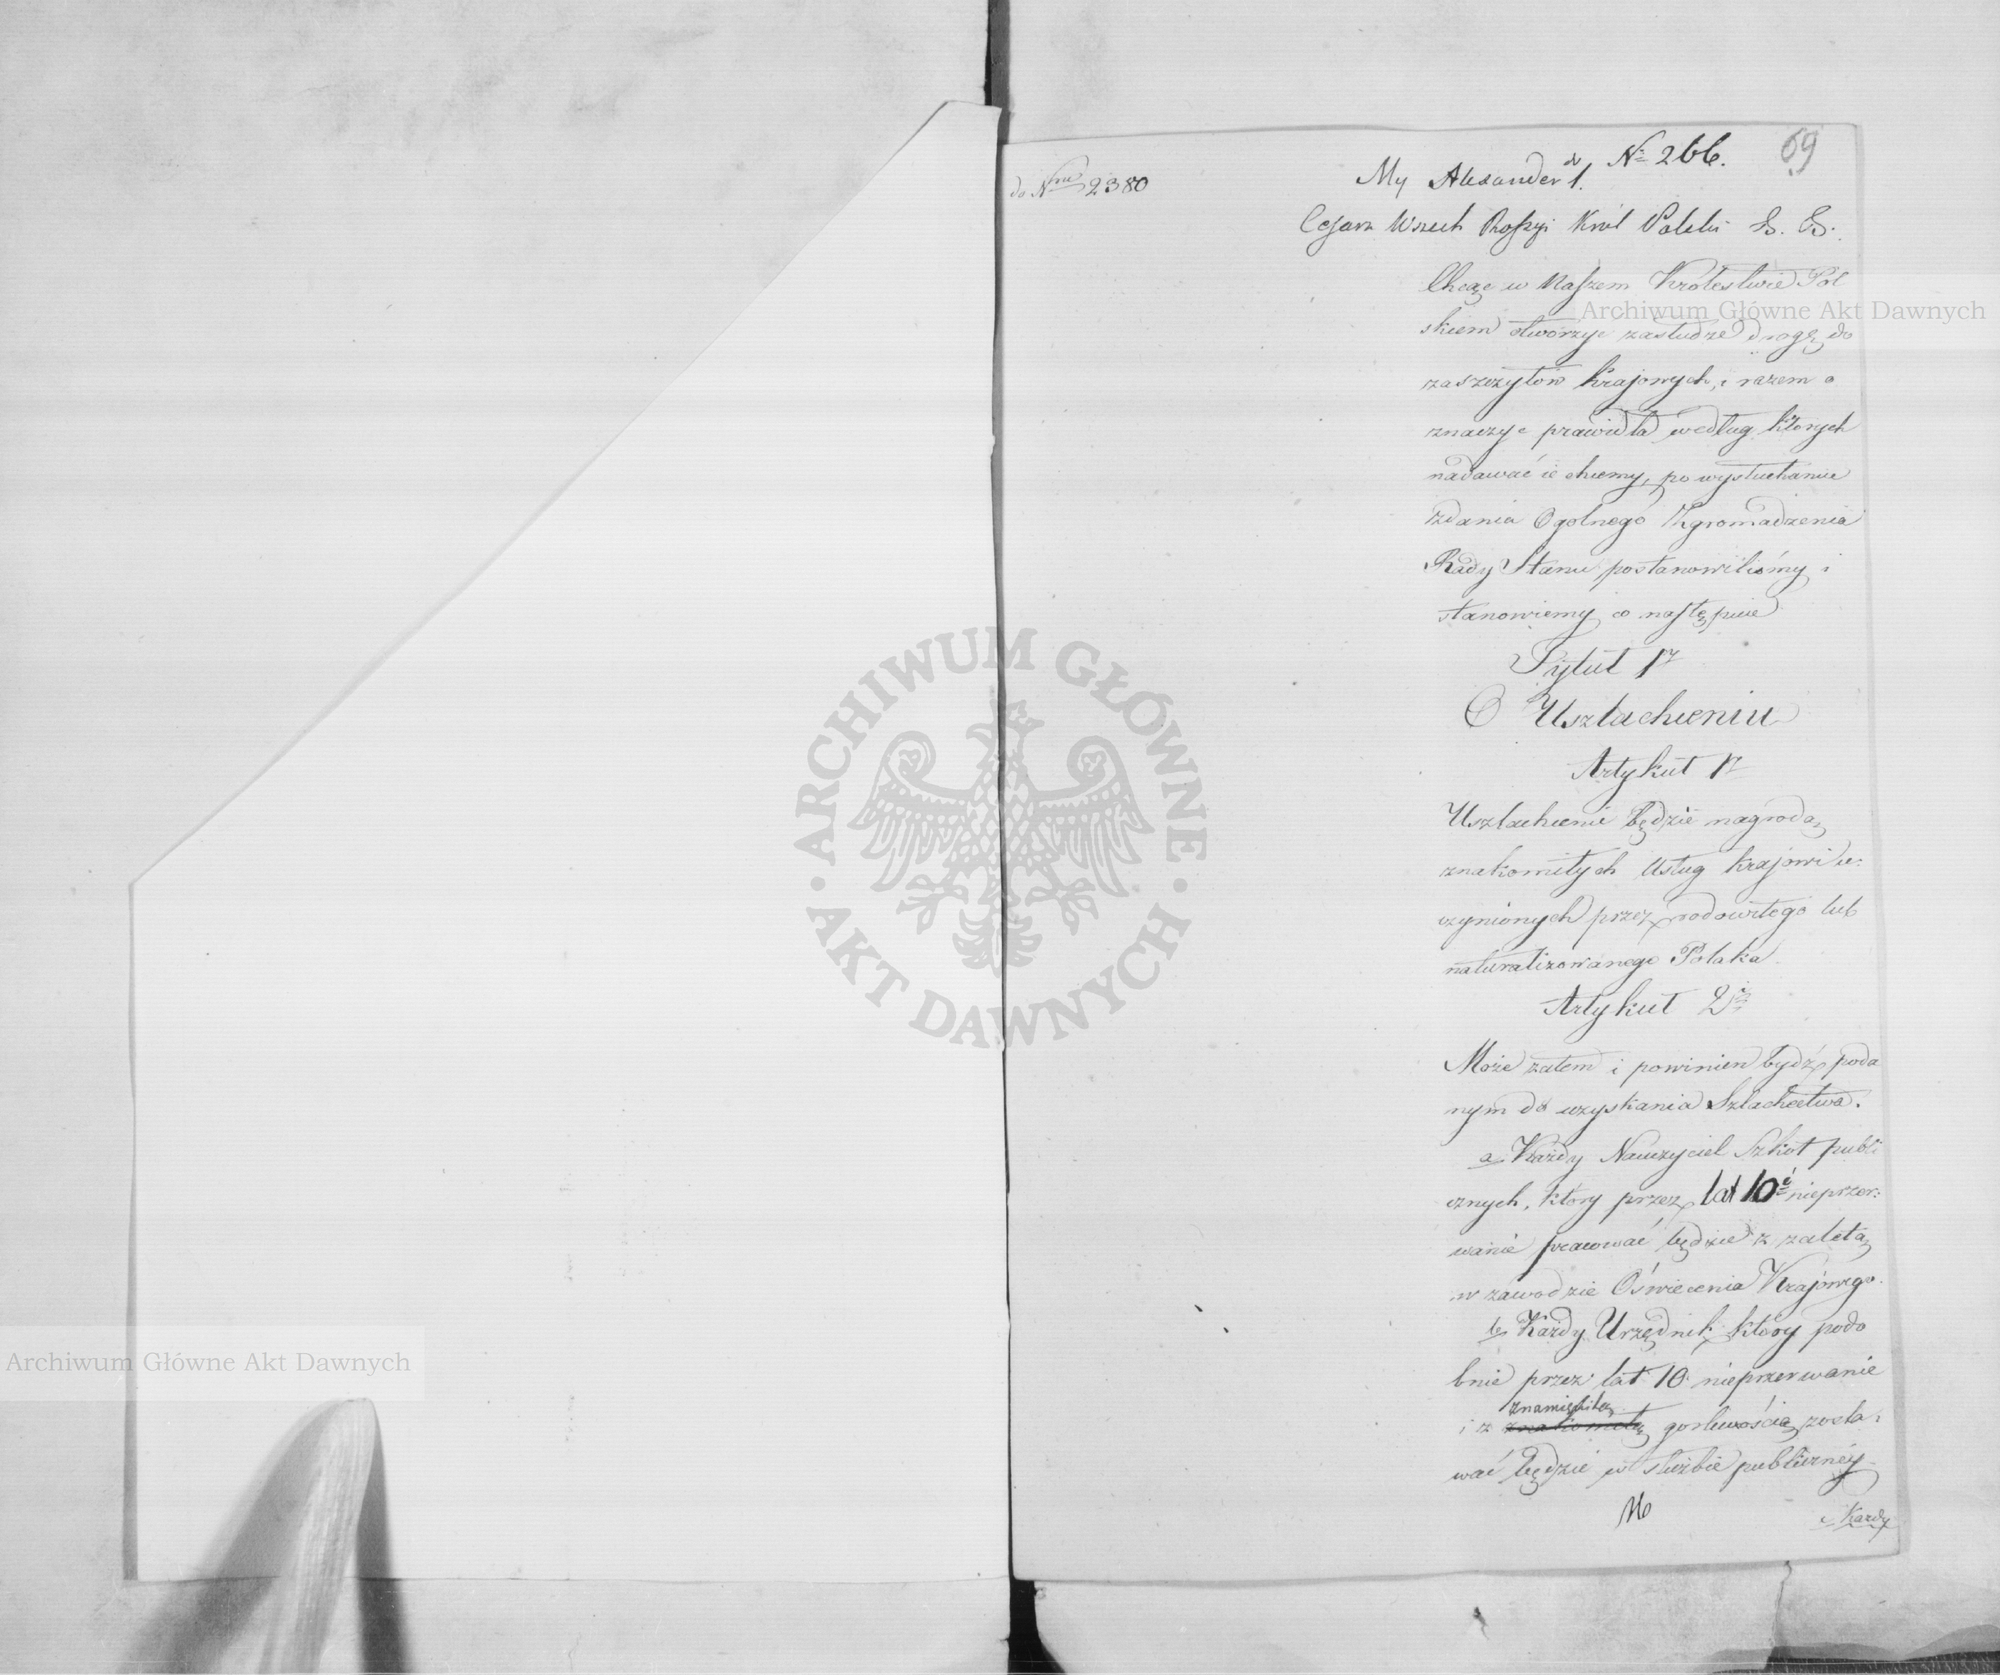 69
do Nru 2380
do № 266.
My Alexander 1.
Cesarz Wszech Rossyi Król Polski &. &.
Chcąc w Naszem Królestwie Pol
skiem otworzyć zasłudze drogę do
zaszczytów krajowych, i razem o
znaczyć prawidła według których
nadawać ie chcemy, po wysłuchaniu
zdania Ogolnego Zgromadzenia
Rady Stanu postanowiliśmy i
stanowiemy co następuie
Tytuł 1y
O Uszlachceniu
Artykuł 1y
Uszlachcenie będzie nagrodą
znakomitych usług krajowi u:
czynionych przez rodowitego lub
naturalizowanego Polaka
Artykuł 2i
Może zatem i powinien bydź poda
nym do uzyskania Szlachectwa.
a Każdy Nauczyciel Szkół publi
cznych, który przez lat 10ć nieprzer:
wanie pracować będzie z zaletą
w zawodzie Oświecenia Krajowego.
b Każdy Urzędnik, który podo
bnie przez lat 10. nieprzerwanie
znamienitą
i z znakomitą gorliwością zosta:
wać będzie w służbie publicznéy
c Każdy
Archiwum Główne Akt Dawnych
ARCHIWUM GŁÓWNE · AKT DAWNYCH ·
Archiwum Główne Akt Dawnych